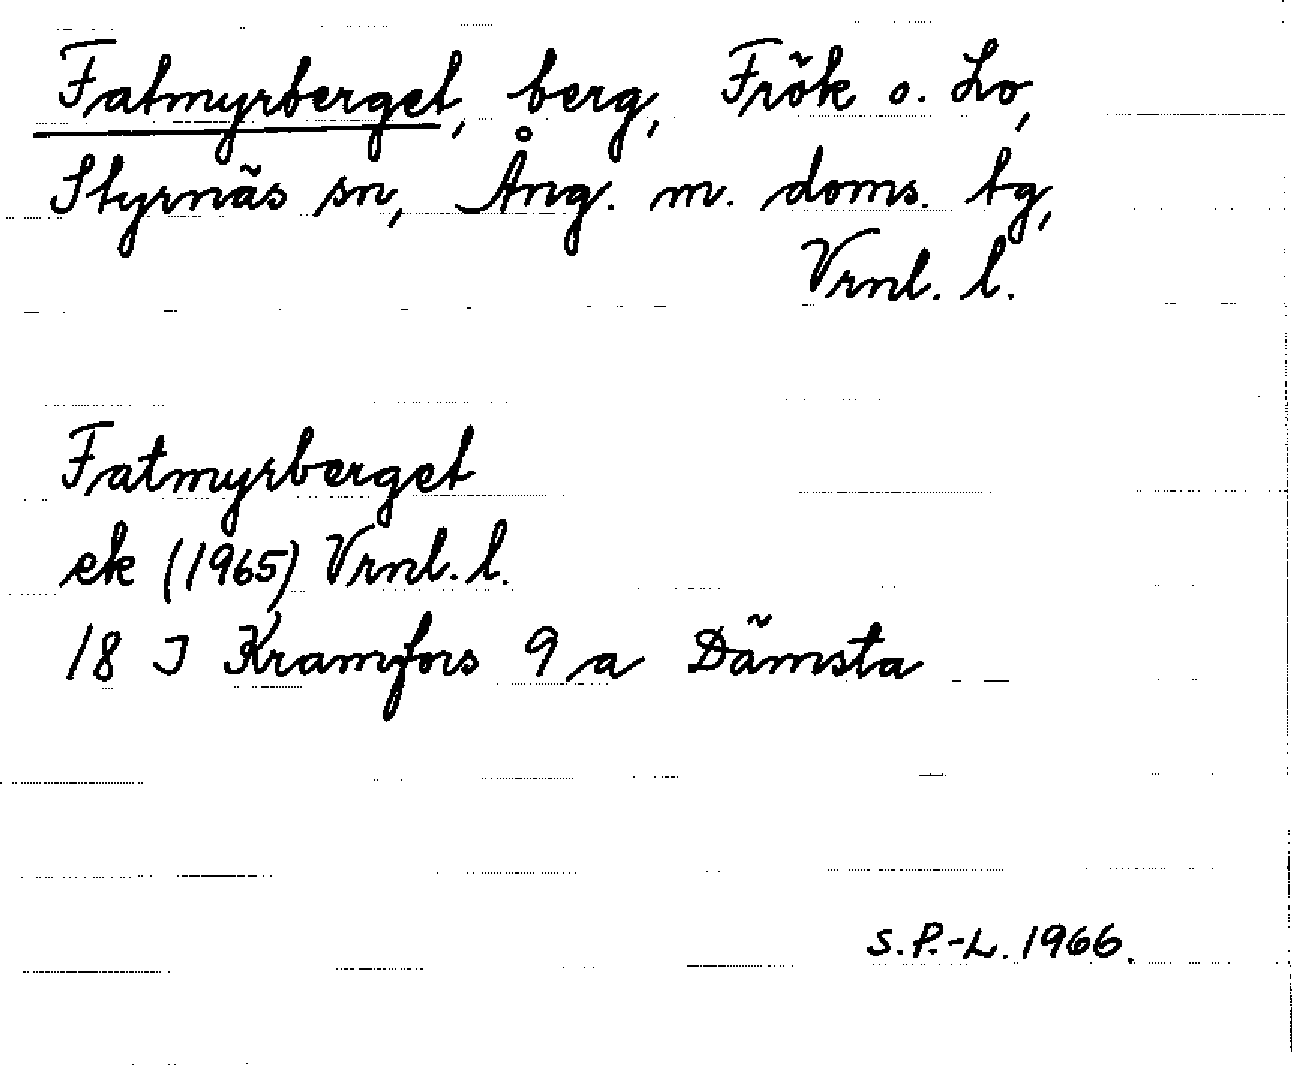 Fatmyrberget, berg, Frök o. Lo,
Styrnäs sn, Ång. m. doms. tg,
Vrnl. l.
Fatmyrberget
ek (1965) Vrnl. l.
18 I Kramfors 9 a Dämsta
S.P.-L. 1966.